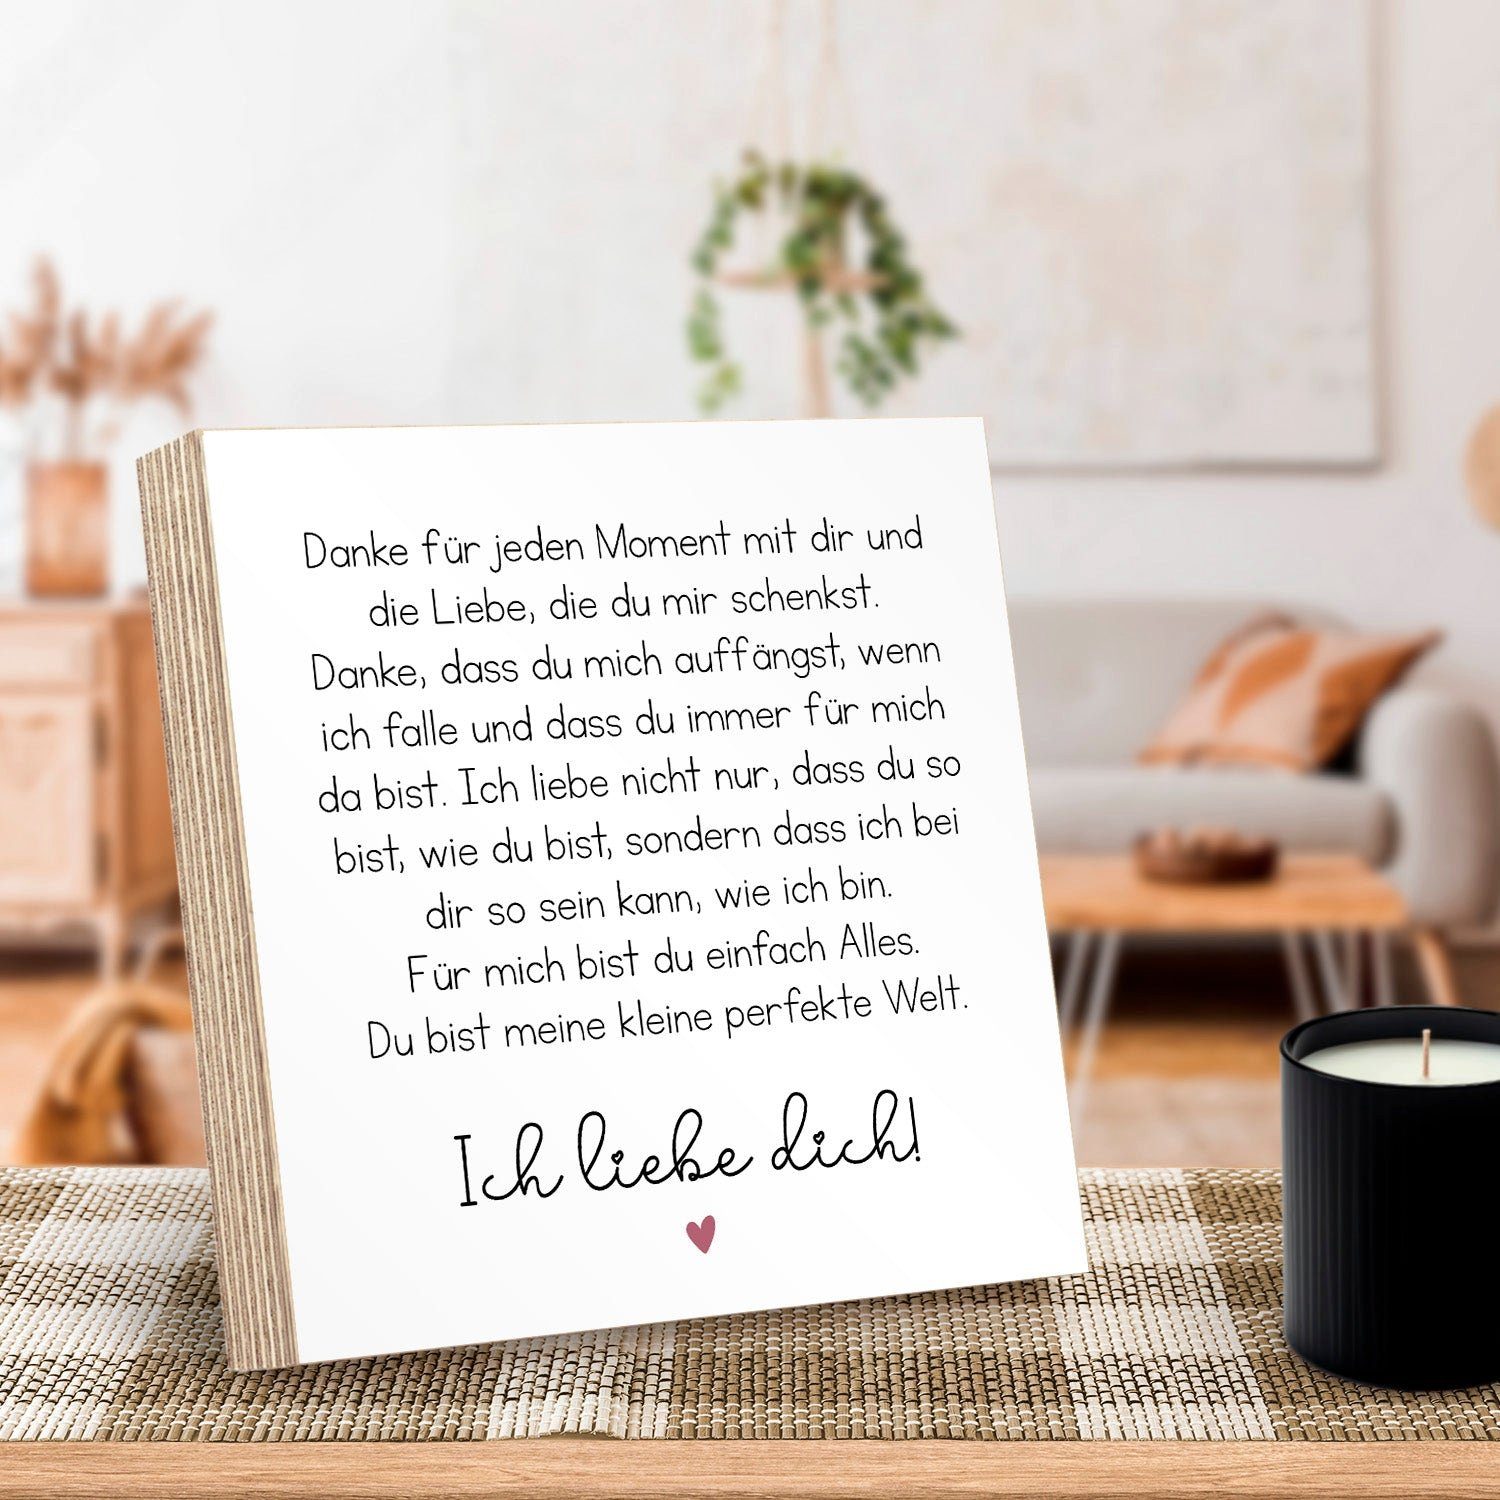 Danke für jeden Moment mit dir und
die Liebe, die du mir schenkst.
Danke, dass du mich auffängst, wenn
ich falle und dass du immer für mich
da bist. Ich liebe nicht nur, dass du so
bist, wie du bist, sondern dass ich bei
dir so sein kann, wie ich bin.
Für mich bist du einfach Alles.
Du bist meine kleine perfekte Welt.
Ich liebe dich!